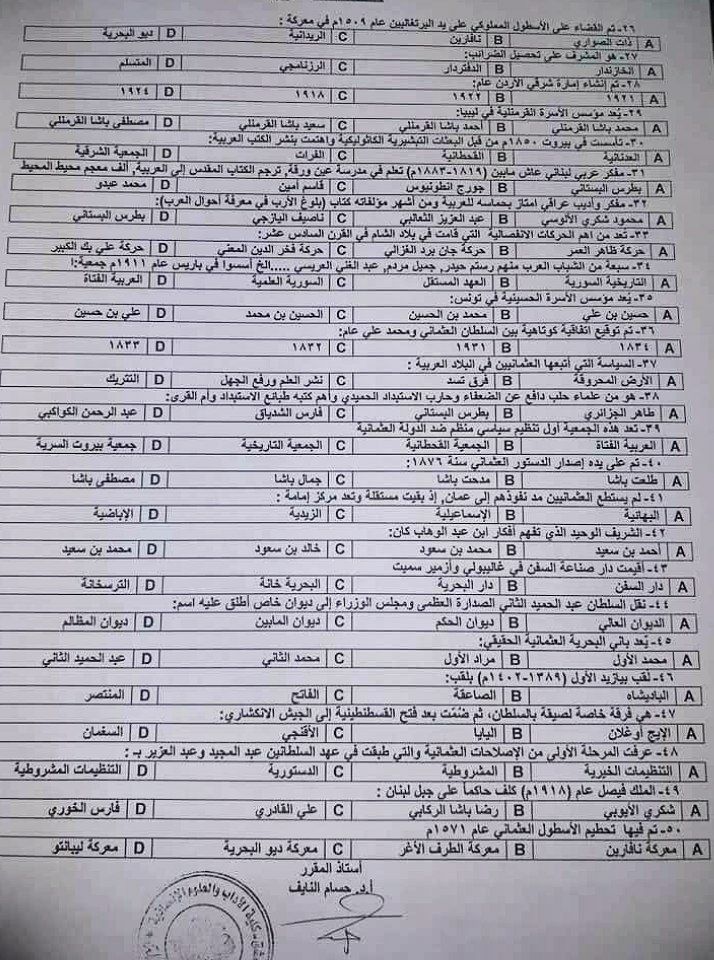 ٢٦- تم القضاء على الأسطول المملوكي على يد البرتغاليين عام ١٥٠٩م في معركة :
A ذات الصواري B نافارين C الريدانية D ديو البحرية
٢٧- هو المشرف على تحصيل الضرائب:
A الخازندار B الدفتردار C الرزنامجي D المتسلم
٢٨- تم إنشاء إمارة شرقي الأردن عام:
A ١٩٢١ B ١٩٢٢ C ١٩١٨ D ١٩٢٤
٢٩- يُعد مؤسس الأسرة القرمنلية في ليبيا:
A محمد باشا القرمنلي B أحمد باشا القرمنلي C سعيد باشا القرمنلي D مصطفى باشا القرمنلي
٣٠- تأسست في بيروت ١٨٥٠م من قبل البعثات التبشيرية الكاثوليكية واهتمت بنشر الكتب العربية:
A العدنانية B القحطانية C الفرات D الجمعية الشرقية
٣١- مفكر عربي لبناني عاش مابين (١٨١٩-١٨٨٣م) تعلم في مدرسة عين ورقة, ترجم الكتاب المقدس إلى العربية, ألف معجم محيط المحيط
A بطرس البستاني B جورج انطونيوس C قاسم أمين D محمد عبدو
٣٢- مفكر وأديب عراقي امتاز بحماسه للعربية ومن أشهر مؤلفاته كتاب (بلوغ الأرب في معرفة أحوال العرب):
A محمود شكري الألوسي B عبد العزيز الثعالبي C ناصيف اليازجي D بطرس البستاني
٣٣- تعد من اهم الحركات الانفصالية التي قامت في بلاد الشام في القرن السادس عشر:
A حركة ظاهر العمر B حركة جان برد الغزالي C حركة فخر الدين المعني D حركة علي بك الكبير
٣٤- سبعة من الشباب العرب منهم رستم حيدر, جميل مردم, عبد الغني العريسي .....الخ أسسوا في باريس عام ١٩١١م جمعية:ا
A التاريخية السورية B العهد المستقل C السورية العلمية D العربية الفتاة
٣٥- يُعد مؤسس الأسرة الحسينية في تونس:
A حسين بن علي B محمد بن الحسين C الحسين بن محمد D علي بن حسين
٣٦- تم توقيع اتفاقية كوتاهية بين السلطان العثماني ومحمد علي عام:
A ١٨٣٤ B ١٩٣١ C ١٨٣٢ D ١٨٣٣
٣٧- السياسة التي أتبعها العثمانيين في البلاد العربية :
A الأرض المحروقة B فرق تسد C نشر العلم ورفع الجهل D التتريك
٣٨- هو من علماء حلب دافع عن الضعفاء وحارب الاستبداد الحميدي وأهم كتبه طبائع الاستبداد وأم القرى:
A طاهر الجزائري B بطرس البستاني C فارس الشدياق D عبد الرحمن الكواكبي
٣٩- تعد هذه الجمعية أول تنظيم سياسي منظم ضد الدولة العثمانية
A العربية الفتاة B الجمعية القحطانية C الجمعية التاريخية D جمعية بيروت السرية
٤٠- تم على يده إصدار الدستور العثماني سنة ١٨٧٦:
A طلعت باشا B مدحت باشا C جمال باشا D مصطفى باشا
٤١- لم يستطع العثمانيين مد نفوذهم إلى عمان, إذ بقيت مستقلة وتعد مركز إمامة :
A البهائية B الإسماعيلية C الزيدية D الإباضية
٤٢- الشريف الوحيد الذي تفهم أفكار ابن عبد الوهاب كان:
A أحمد بن سعيد B محمد بن سعود C خالد بن سعود D محمد بن سعيد
٤٣- أقيمت دار صناعة السفن في غاليبولي وأزمير سميت
A دار السفن B دار البحرية C البحرية خانة D الترسخانة
٤٤- نقل السلطان عبد الحميد الثاني الصدارة العظمى ومجلس الوزراء إلى ديوان خاص أطلق عليه اسم:
A الديوان العالي B ديوان الحكم C ديوان المابين D ديوان المظالم
٤٥- يُعد باني البحرية العثمانية الحقيقي:
A محمد الأول B مراد الأول C محمد الثاني D عبد الحميد الثاني
٤٦- لقب بيازيد الأول (١٣٨٩-١٤٠٢م) بلقب:
A الباديشاه B الصاعقة C الفاتح D المنتصر
٤٧- هي فرقة خاصة لصيقة بالسلطان، ثم ضُمّت بعد فتح القسطنطينية إلى الجيش الانكشاري:
A الإيج أوغلان B اليايا C الأقنجي D السغمان
٤٨- عرفت المرحلة الأولى من الإصلاحات العثمانية والتي طبقت في عهد السلطانين عبد المجيد وعبد العزيز بـ :
A التنظيمات الخيرية B المشروطية C الدستورية D التنظيمات المشروطية
٤٩- الملك فيصل عام (١٩١٨م) كلف حاكماً على جبل لبنان :
A شكري الأيوبي B رضا باشا الركابي C علي القادري D فارس الخوري
٥٠- تم فيها تحطيم الأسطول العثماني عام ١٥٧١م
A معركة نافارين B معركة الطرف الأغر C معركة ديو البحرية D معركة ليبانتو
أستاذ المقرر
أ.د. حسام النايف
كلية الآداب والعلوم الإنسانية